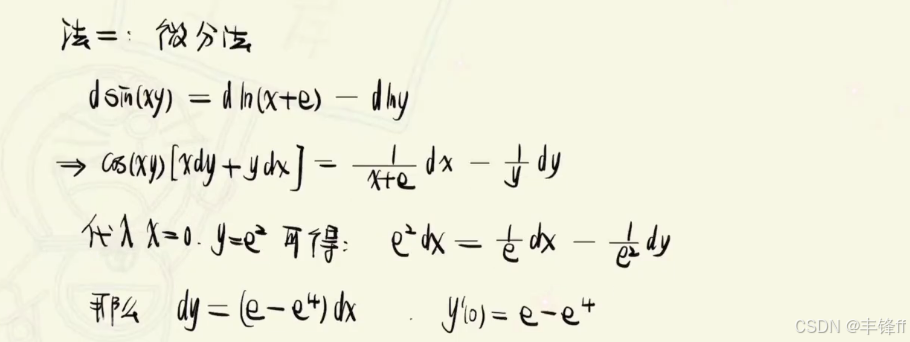 法二：微分法
d sin(xy) = d ln(x+e) - d lny
⇒ cos(xy)[xdy+ydx] = \frac{1}{x+e} dx - \frac{1}{y} dy
代入 x=0. y=e² 可得： e²dx = \frac{1}{e} dx - \frac{1}{e²} dy
那么 dy = (e-e⁴)dx . y'(0) = e-e⁴
CSDN @丰锋ff